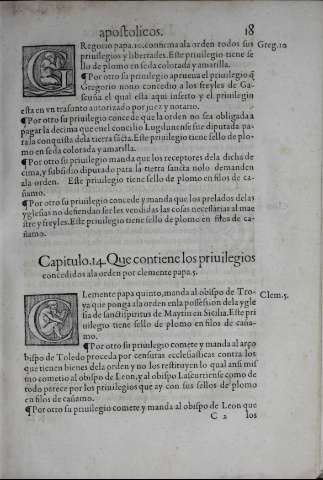 apostolicos. 18
GRegorio papa.10.confirma ala orden todos sus Greg.10
priuilegios y libertades. Este priuilegio tiene se
llo de plomo en seda colorada y amarilla.
¶Por otro su priuilegio aprueua el priuilegio q̃
Gregorio nono concedio a los freyles de Gas-
cuña el qual esta aqui inserto y el priuilegio
esta en vn trasunto autorizado por juez y notario.
¶Por otro su priuilegio concede que la orden no sea obligada a
pagar la decima que enel concilio Lugdunense fue diputada pa-
ra la conquista dela tierra sãcta. Este priuilegio tiene sello de plo-
mo en seda colorada y amarilla.
¶Por otro su priuilegio manda que los receptores dela dicha de-
cima, y subsidio diputado para la tierra sancta nolo demanden
ala orden. Este priuilegio tiene sello de plomo en filos de ca-
ñamo.
¶Por otro su priuilegio concede y manda que los prelados delas
yglesias no defiendan ser les vendidas las cosas necessarias al mae
stre y freyles. Este priuilegio tiene sello de plomo en filos de ca-
ñamo.
Capitulo.14. Que contiene los priuilegios
concedidos ala orden por clemente papa.5.
CLemente papa quinto, manda al obispo de Tro- Clem.5.
ya que ponga ala orden enla possession dela ygle
sia de sanctispiritus de Maytin en Sicilia. Este pri
uilegio tiene sello de plomo en filos de caña-
mo.
¶Por otro su priuilegio comete y manda al arço
bispo de Toledo proceda por censuras ecclesiasticas contra los
que tienen bienes dela orden y no los restituyen lo qual ansi mis
mo cometio al obispo de Leon, y al obispo Lascurriense como de
todo parece por los priuilegios que ay con sus sellos de plomo
en filos de cañamo.
¶Por otro su priuilegio comete y manda al obispo de Leon que
C 2 los